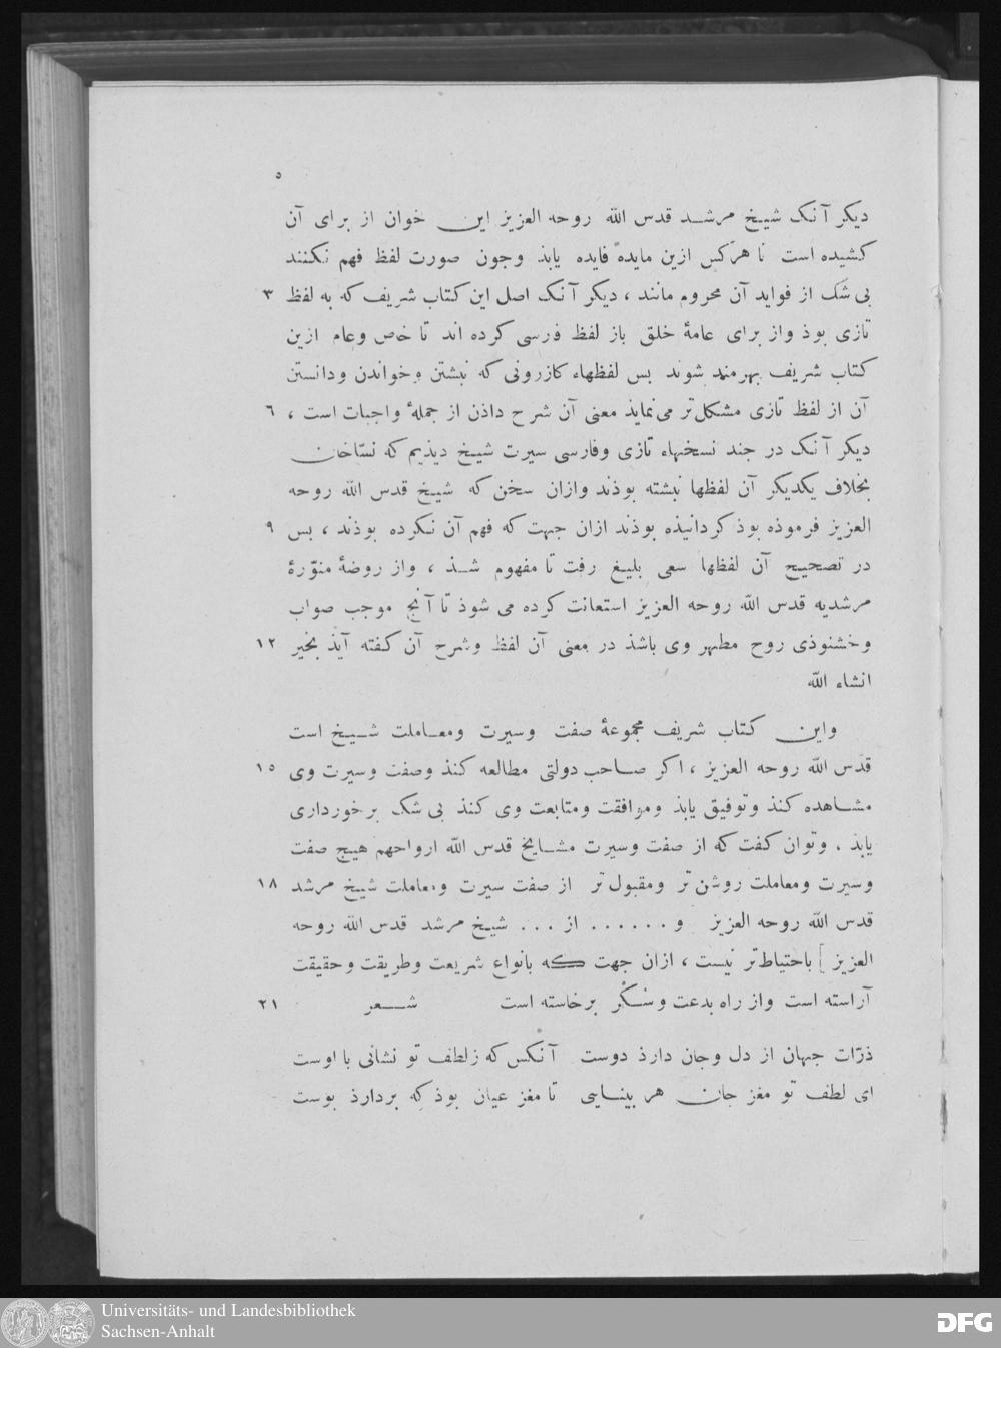 ٥
دیکر آنک شیخ مرشد قدس الله روحه العزیز این خوان از برای آن
کشیده است تا هرکس ازین مایدهٔ فایده یابذ وجون صورت لفظ فهم نکنند
بی شک از فواید آن محروم مانند ، دیکر آنک اصل این کتاب شریف که به لفظ ٣
تازی بوذ واز برای عامهٔ خلق باز لفظ فرسی کرده اند تا خاص وعام ازین
کتاب شریف بهرمند شوند بس لفظهاء کازرونی که نبشتن وخواندن ودانستن
آن از لفظ تازی مشکل‌تر می‌نمایذ معنی آن شرح داذن از جملهٔ واجبات است ، ٦
دیکر آنک در جند نسخهاء تازی وفارسی سیرت شیخ دیذیم که نسّاخان
بخلاف یکدیکر آن لفظها نبشته بوذند وازان سخن که شیخ قدس الله روحه
العزیز فرموذه بوذ کردانیذه بوذند ازان جهت که فهم آن نکرده بوذند ، بس ٩
در تصحیح آن لفظها سعی بلیغ رفت تا مفهوم شذ ، واز روضهٔ منوّرهٔ
مرشدیه قدس الله روحه العزیز استعانت کرده می شوذ تا آنج موجب صواب
وخشنوذی روح مطهر وی باشذ در معنی آن لفظ وشرح آن کفته آیذ بخیر ١٢
انشاء الله
واین کتاب شریف مجموعهٔ صفت وسیرت ومعاملت شیخ است
قدس الله روحه العزیز ، اکر صاحب دولتی مطالعه کنذ وصفت وسیرت وی ١٥
مشاهده کنذ وتوفیق یابذ وموافقت ومتابعت وی کنذ بی شک برخورداری
یابذ ، وتوان کفت که از صفت وسیرت مشایخ قدس الله ارواحهم هیج صفت
وسیرت ومعاملت روشن‌تر ومقبول‌تر از صفت سیرت ومعاملت شیخ مرشد ١٨
قدس الله روحه العزیز و ...... از ... شیخ مرشد قدس الله روحه
العزیز] باحتیاط‌تر نیست ، ازان جهت که بانواع شریعت وطریقت وحقیقت
آراسته است واز راه بدعت وسُکْر برخاسته است شعر ٢١
ذرّات جهان از دل وجان دارذ دوست آنکس که زلطف تو نشانی با اوست
ای لطف تو مغز جان هر بینایی تا مغز عیان بوذ که بردارذ بوست
Universitäts- und Landesbibliothek
Sachsen-Anhalt
DFG